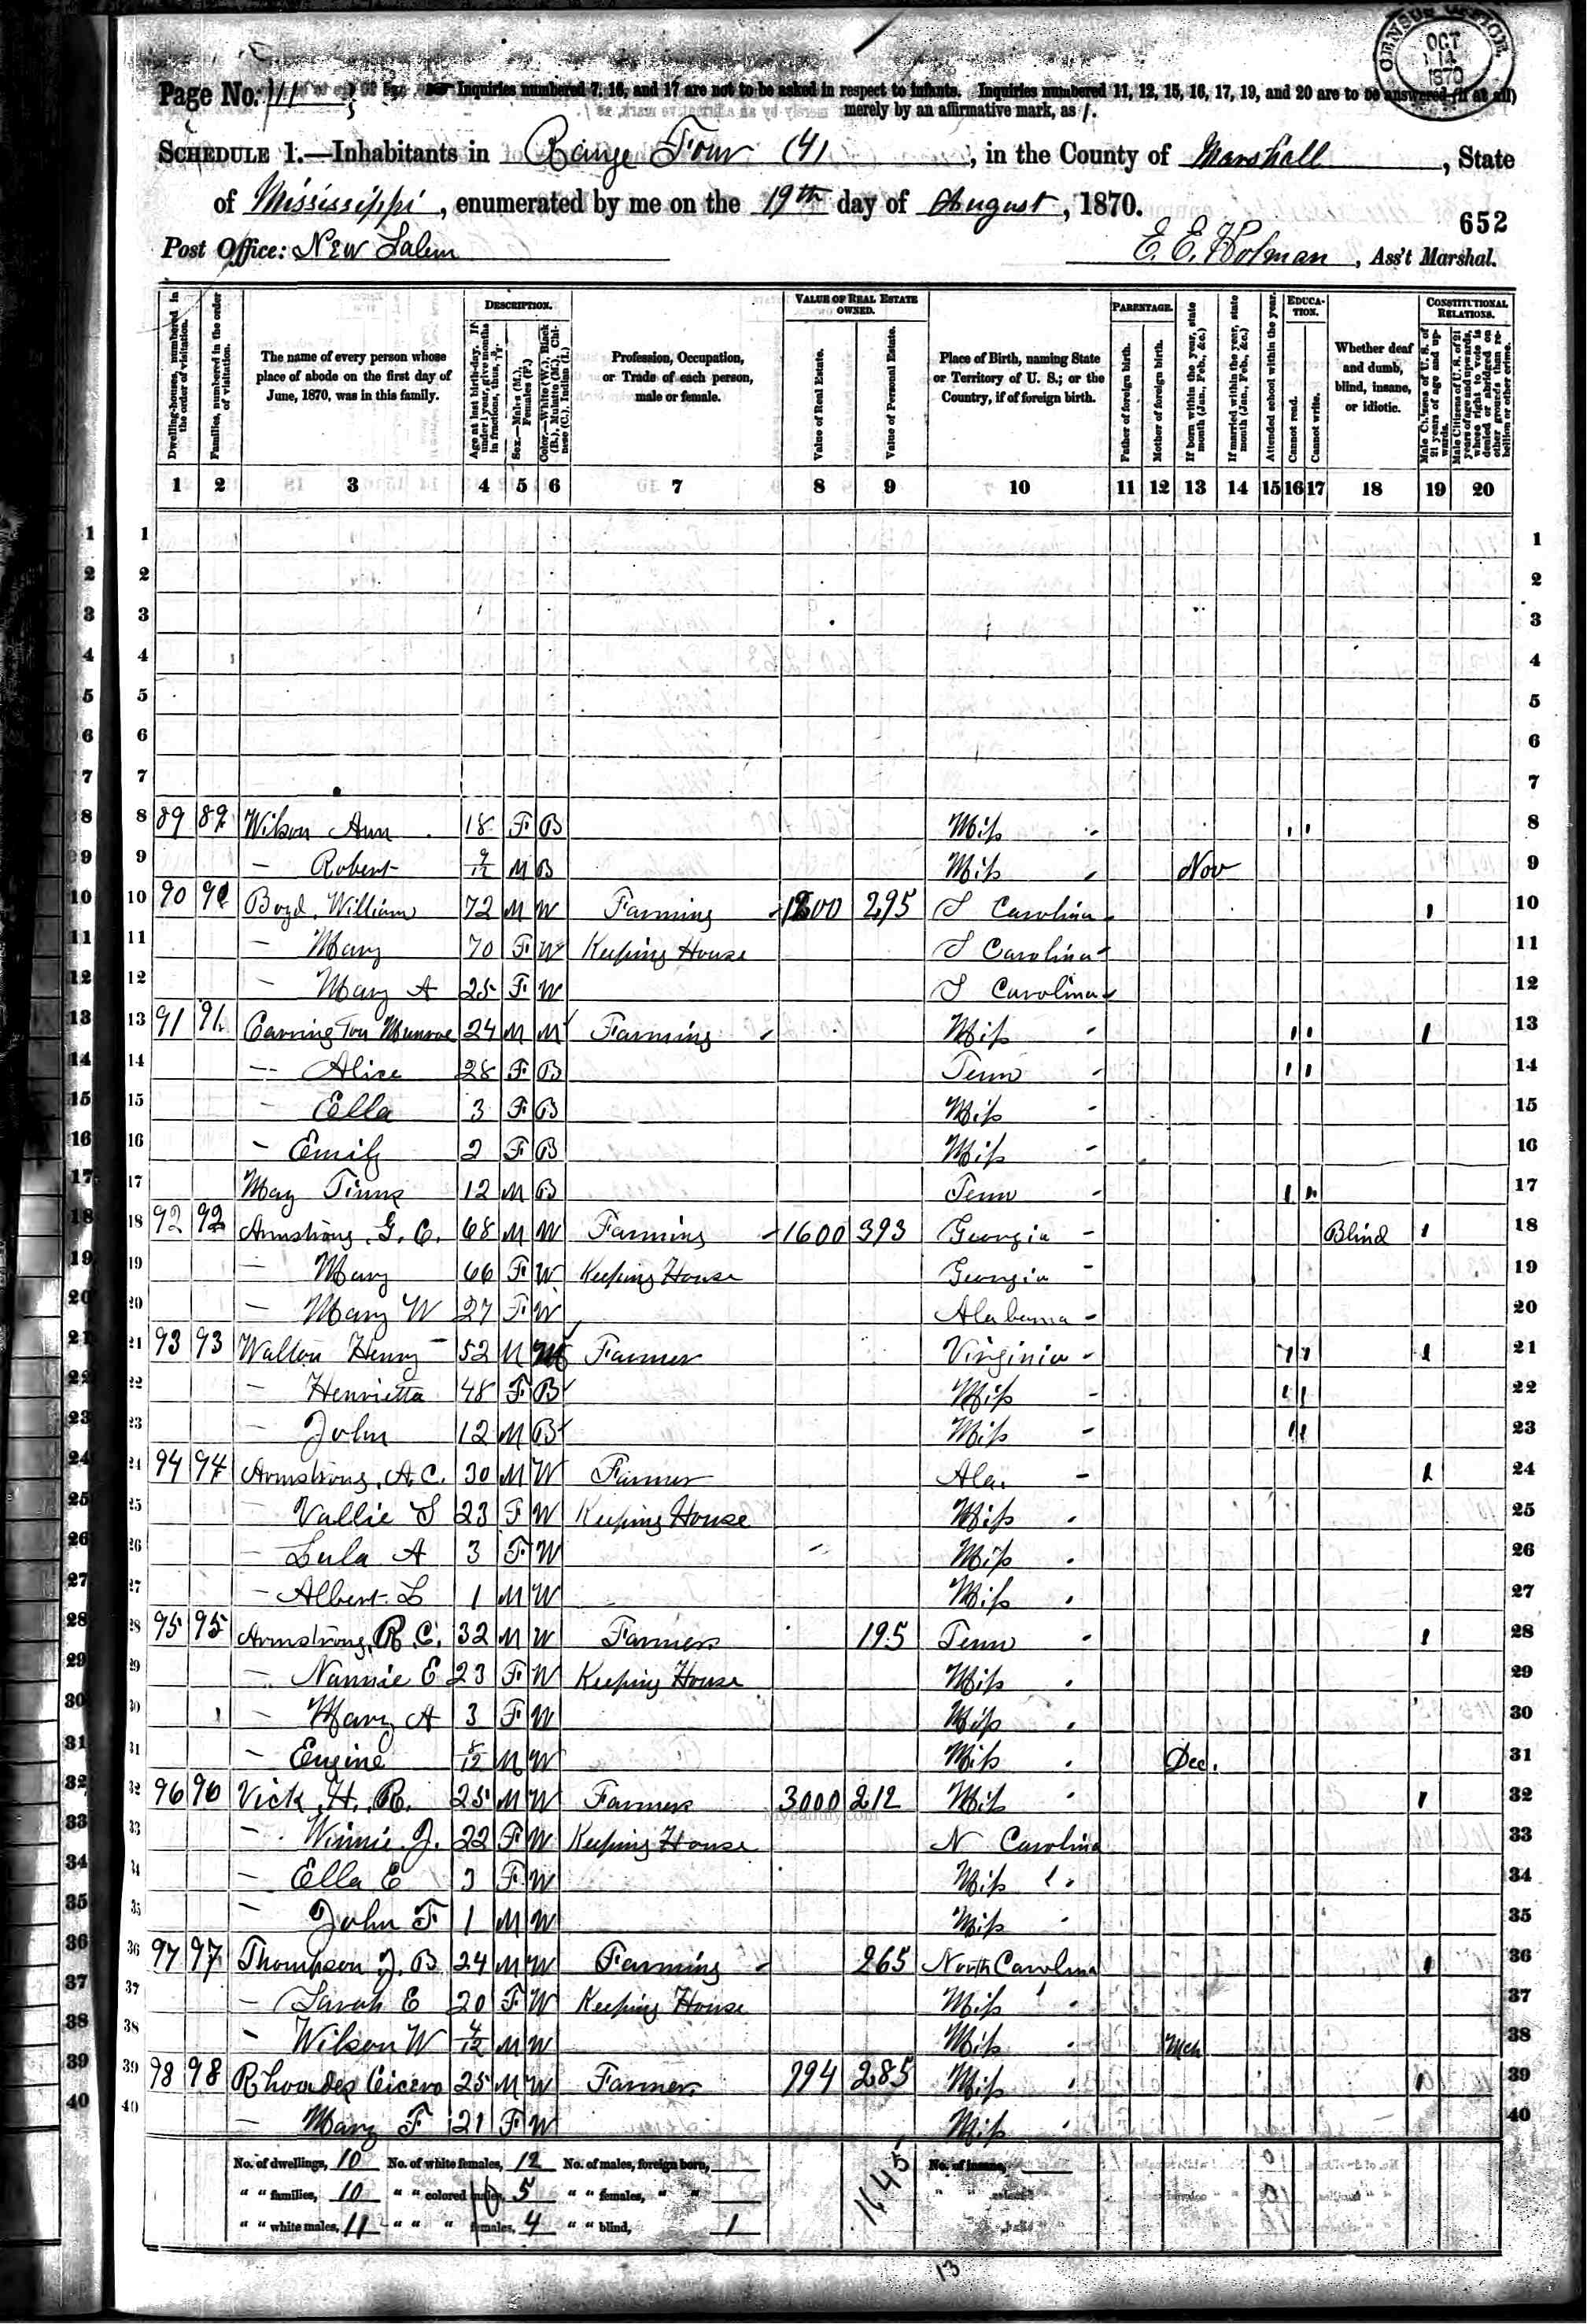 CENSUS OFFICE OCT 14 1870
Page No. 11 Inquiries numbered 7, 16, and 17 are not to be asked in respect to infants. Inquiries numbered 11, 12, 15, 16, 17, 19, and 20 are to be answered (if at all)
merely by an affirmative mark, as /.
SCHEDULE 1.—Inhabitants in Range Four (4), in the County of Marshall, State
of Mississippi, enumerated by me on the 19th day of August, 1870.
652
Post Office: New Salem E. E. Holman, Ass't Marshal.
DESCRIPTION. VALUE OF REAL ESTATE OWNED. PARENTAGE. EDUCATION. CONSTITUTIONAL RELATIONS.
Dwelling-houses, numbered in the order of visitation.
Families, numbered in the order of visitation.
The name of every person whose place of abode on the first day of June, 1870, was in this family.
Age at last birth-day. If under 1 year, give months in fractions, thus, 3/12.
Sex.—Males (M.), Females (F.)
Color.—White (W.), Black (B.), Mulatto (M.), Chinese (C.), Indian (I.)
Profession, Occupation, or Trade of each person, male or female.
Value of Real Estate.
Value of Personal Estate.
Place of Birth, naming State or Territory of U. S.; or the Country, if of foreign birth.
Father of foreign birth.
Mother of foreign birth.
If born within the year, state month (Jan., Feb., &c.)
If married within the year, state month (Jan., Feb., &c.)
Attended school within the year.
Cannot read.
Cannot write.
Whether deaf and dumb, blind, insane, or idiotic.
Male Citizens of U. S. of 21 years of age and upwards.
Male Citizens of U. S. of 21 years of age and upwards, whose right to vote is denied or abridged on other grounds than rebellion or other crime.
1 2 3 4 5 6 7 8 9 10 11 12 13 14 15 16 17 18 19 20
1 1 1
2 2 2
3 3 3
4 4 4
5 5 5
6 6 6
7 7 7
8 8 89 89 Wilson Ann 18 F B Miss 8
9 9 — Robert 9/12 M B Miss Nov 9
10 10 90 90 Boyd, William 72 M W Farming 1200 295 S Carolina 10
11 11 — Mary 70 F W Keeping House S Carolina 11
12 12 — Mary A 25 F W S Carolina 12
13 13 91 91 Carrington Munroe 24 M M Farming Miss 13
14 14 — Alice 28 F B Tenn 14
15 15 — Ella 3 F B Miss 15
16 16 — Emily 2 F B Miss 16
17 17 May 12 M B Tenn 17
18 18 92 92 Armstrong, G. C. 68 M W Farming 1600 393 Georgia Blind 18
19 19 — Mary 66 F W Keeping House Georgia 19
20 20 — Mary W 27 F W Alabama 20
21 21 93 93 Walton Henry 52 M M Farmer Virginia 21
22 22 — Henrietta 48 F B Miss 22
23 23 — John 12 M B Miss 23
24 24 94 94 Armstrong, A. C. 30 M W Farmer Ala. 24
25 25 — Vallie S 23 F W Keeping House Miss 25
26 26 — Lula A 3 F W Miss 26
27 27 — Albert L 1 M W Miss 27
28 28 95 95 Armstrong, R. C. 32 M W Farmer 195 Tenn 28
29 29 — Nannie E 23 F W Keeping House Miss 29
30 30 — Mary A 3 F W Miss 30
31 31 — Eugine M W Miss Dec. 31
32 32 96 96 Vick, H. R. 25 M W Farmer 3000 212 Miss 32
33 33 — Winnie J. 22 F W Keeping House N Carolina 33
34 34 — Ella E 3 F W Miss 34
35 35 — John F 1 M W Miss 35
36 36 97 97 Thompson J. B 24 M W Farming 265 North Carolina 36
37 37 — Sarah E 20 F W Keeping House Miss 37
38 38 — Wilson W 4/12 M W Miss Mch 38
39 39 98 98 Rhoades Cicero 25 M W Farmer 794 285 Miss 39
40 40 — Mary F 21 F W Miss 40
No. of dwellings, 10 No. of white females, 12 No. of males, foreign born, No. of insane,
" " families, 10 " " colored males, 5 " " females, " "
" " white males, 11 " " " females, 4 " " blind, 1
1645
13